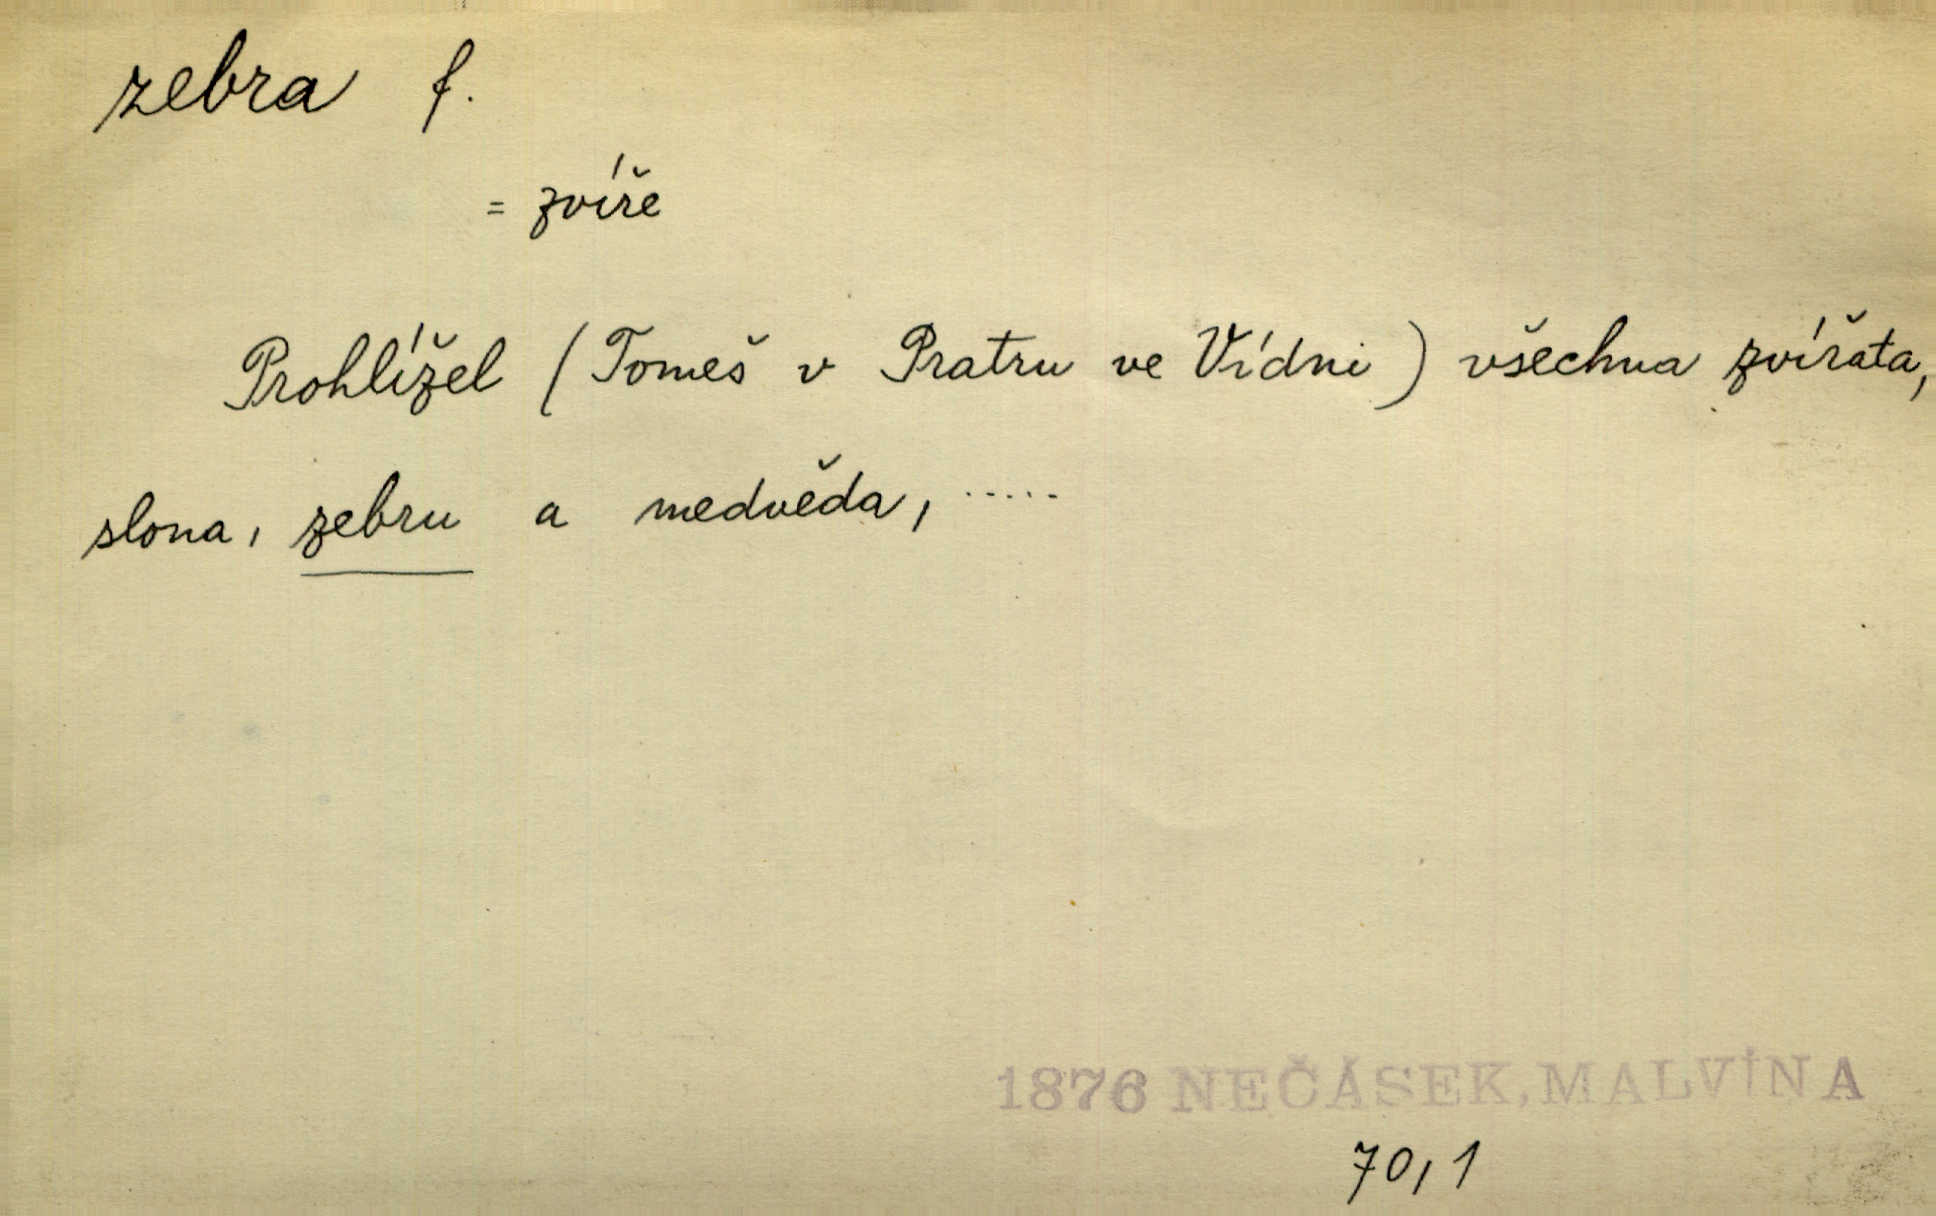 zebra f.
= zvíře
Prohlížel (Tomeš v Pratru ve Vídni) všechna zvířata,
slona, zebru a medvěda, .....
1876 NEČÁSEK, MALVÍNA
70,1